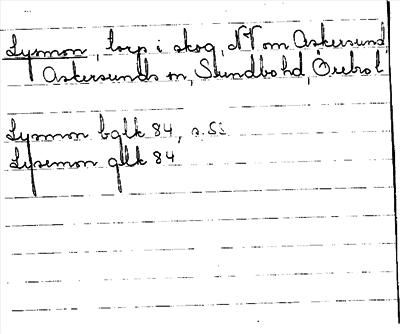 Lysmon, torp i skog, NV om Askersund,
Askersunds sn, Sundbo hd, Örebro l
Lysmon bglk 84, s. Si
Lysemon glk 84